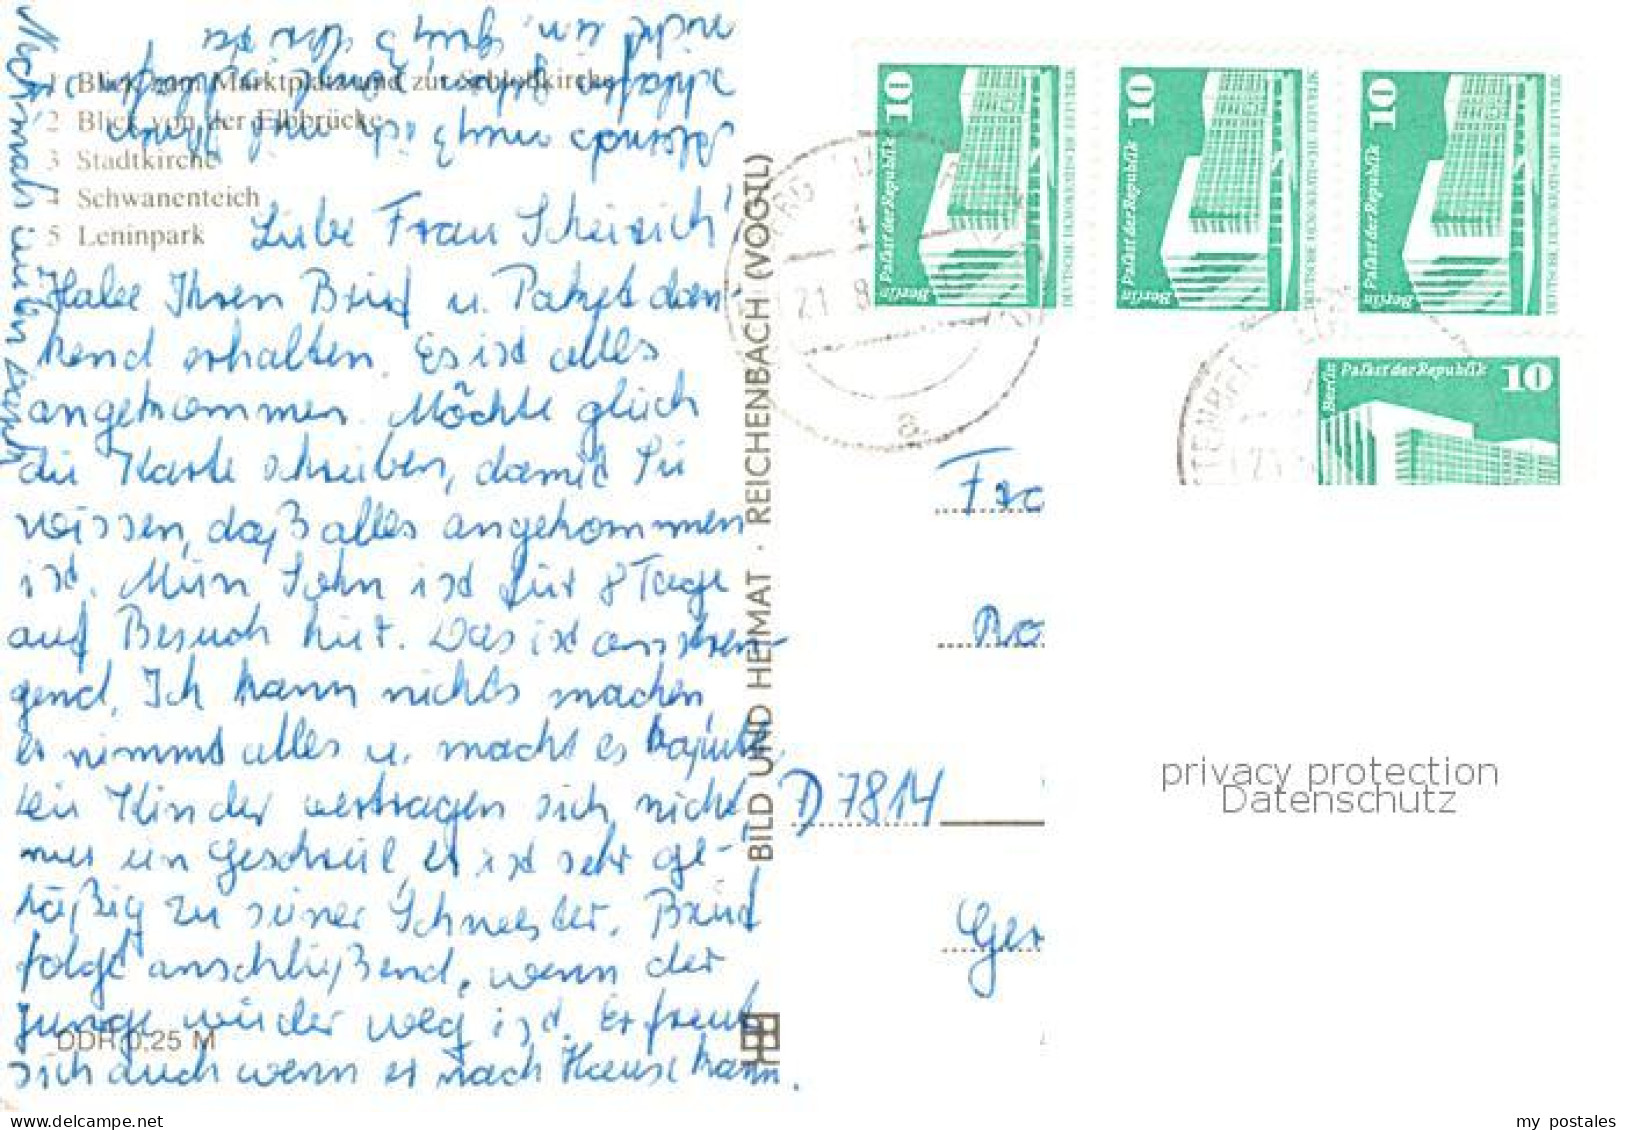 1 Blick zum Marktplatz und zur Schloßkirche
2 Blick von der Elbbrücke
3 Stadtkirche
4 Schwanenteich
5 Leninpark
Liebe Frau
Habe Ihren Brief u. Paket dan-
kend erhalten. Es ist alles
angekommen. Möchte gleich
die Karte schreiben, damit Sie
wissen, daß alles angekommen
ist. Mein Sohn ist für 8 Tage
auf Besuch hier. Das ist anstren-
gend. Ich kann nichts machen,
er nimmt alles u. macht es kaputt.
Kinder vertragen sich nicht,
nur ein Geschrei, er ist sehr ge-
häßig zu seiner Schwester. Brief
folgt anschließend, wenn der
Junge wieder weg ist. Er freut
sich auch wenn er nach Hause kann.
DDR 0,25 M
BILD UND HEIMAT · REICHENBACH (VOGTL)
10
Berlin Palast der Republik
DEUTSCHE DEMOKRATISCHE REPUBLIK
10
Berlin Palast der Republik
DEUTSCHE DEMOKRATISCHE REPUBLIK
10
Berlin Palast der Republik
DEUTSCHE DEMOKRATISCHE REPUBLIK
Berlin Palast der Republik 10
21 8
a
21
Fra
D 7814
Ger
privacy protection
Datenschutz
delcampe.net
my_postales